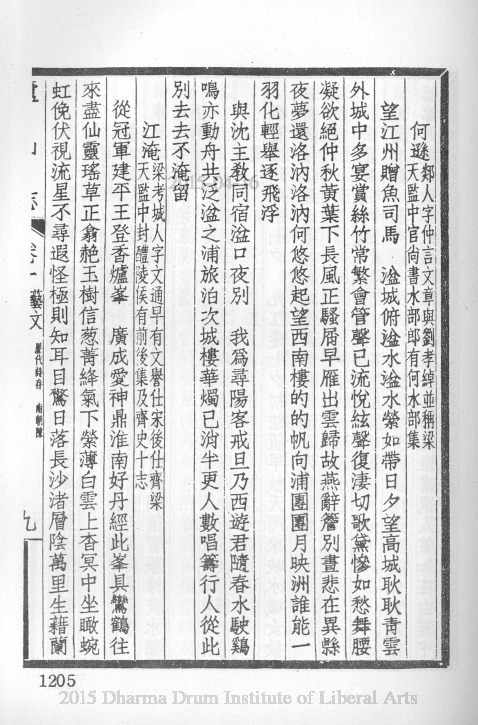 何遜 郯人字仲言文章與劉孝綽並稱梁天監中官尚書水部郎有何水部集
望江州贈魚司馬　湓城俯湓水湓水縈如帶日夕望高城耿耿青雲
外城中多宴賞絲竹常繁會管聲已流悅絃聲復淒切歌黛慘如愁舞腰
凝欲絕仲秋黃葉下長風正騷屑早雁出雲歸故燕辭簷別晝悲在異縣
夜夢還洛汭洛汭何悠悠起望西南樓的的帆向浦團團月映洲誰能一
羽化輕舉逐飛浮
與沈主教同宿湓口夜別　我爲尋陽客戒旦乃西遊君隨春水駛鷄
鳴亦動舟共泛湓之浦旅泊次城樓華燭已消半更人數唱籌行人從此
別去去不淹留
江淹 梁考城人字文通早有文譽仕宋後仕齊梁天監中封醴陵侯有前後集及齊史十志
從冠軍建平王登香爐峯　廣成愛神鼎淮南好丹經此峯具鸞鶴往
來盡仙靈瑤草正翕赩玉樹信葱蒨絳氣下縈薄白雲上杳冥中坐瞰蜿
虹俛伏視流星不尋遐怪極則知耳目驚日落長沙渚層陰萬里生藉蘭
山志 卷十 藝文 歷代詩存 南朝陳
九
1205
2015 Dharma Drum Institute of Liberal Arts